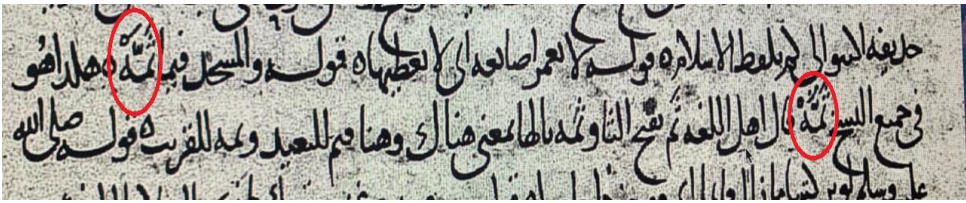 لهم بلفظ الاسلام ه قوله لا يغمر اصابعه اى لا يغطيها ه قوله والمسجد فيما ثمَّهْ ه هكذا هو
فى جميع النسخ ثَمَّهْ قال اهل اللغه ثَم بفتح الثا وثمه بالها بمعنى هناك وهنا فثم للبعيد وثمه للقريب ه قوله صلى الله
عليه وسلم لو